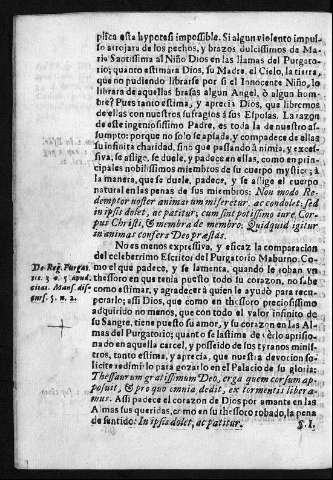 plica esta hypotesi impossible. Si algun violento impul-
so arrojara de los pechos, y brazos dulcissimos de Ma-
ria Santissima al Niño Dios en las llamas del Purgato-
rio; quanto estimára Dios, su Madre, el Cielo, la tierra,
que no pudiendo librarse por si el Innocente Niño, lo
librara de aquellas brasas algun Angel, ò algun hom-
bre? Pues tanto estima, y aprecia Dios, que libremos
de ellas con nuestros sufragios à sus Esposas. La razon
de este ingeniosissimo Padre, es toda la de nuestro as-
sumpto: porque no solo se apiada, y compadece de ellas
su infinita charidad, sino que passando à nimia, y exces-
siva, se aflige, se duele, y padece en ellas, como en prin-
cipales nobilissimos miembros de su cuerpo mystico; à
la manera, que se duele, padece, y se aflige el cuerpo
natural en las penas de sus miembros: Non modo Re-
demptor noster animarum miseretur, ac condolet; sed
in ipsis dolet, ac patitur; cum sint potissimo iure Cor-
pus Christi, & membra de membro. Quidquid igitur
in animas confers Deo præstas.
No es menos expressiva, y eficaz la comparacion
del celeberrimo Escritor del Purgatorio Maburno. Co-
mo el que padece, y se lamenta, quando le roban vn
thessoro en que tenia puesto todo su corazon, no sabe
como estimar, y agradecer à quien le ayudò para recu-
perarlo; assi Dios, que como en thessoro preciosissimo
adquirido no menos, que con todo el valor infinito de
su Sangre, tiene puesto su amor, y su corazon en las Al-
mas del Purgatorio; quanto se lastima de verlo aprisio-
nado en aquella carcel, y posseido de sus tyranos minis-
tros, tanto estima, y aprecia, que nuestra devocion so-
licite redimirlo para gozarlo en el Palacio de su gloria:
Thessaurum gratissimum Deo, erga quem cor suum ap-
posuit, & pro quo omnia dedit, ex tormentis libera-
mus. Assi padece el corazon de Dios por amante en las
Almas sus queridas, como en su thessoro robado, la pena
de sentido: In ipsis dolet, ac patitur.
§. I.
De Reg. Purga.
tit. 3. &. 5. apud.
citat. Mans. dis
curs. 5. n. 2.